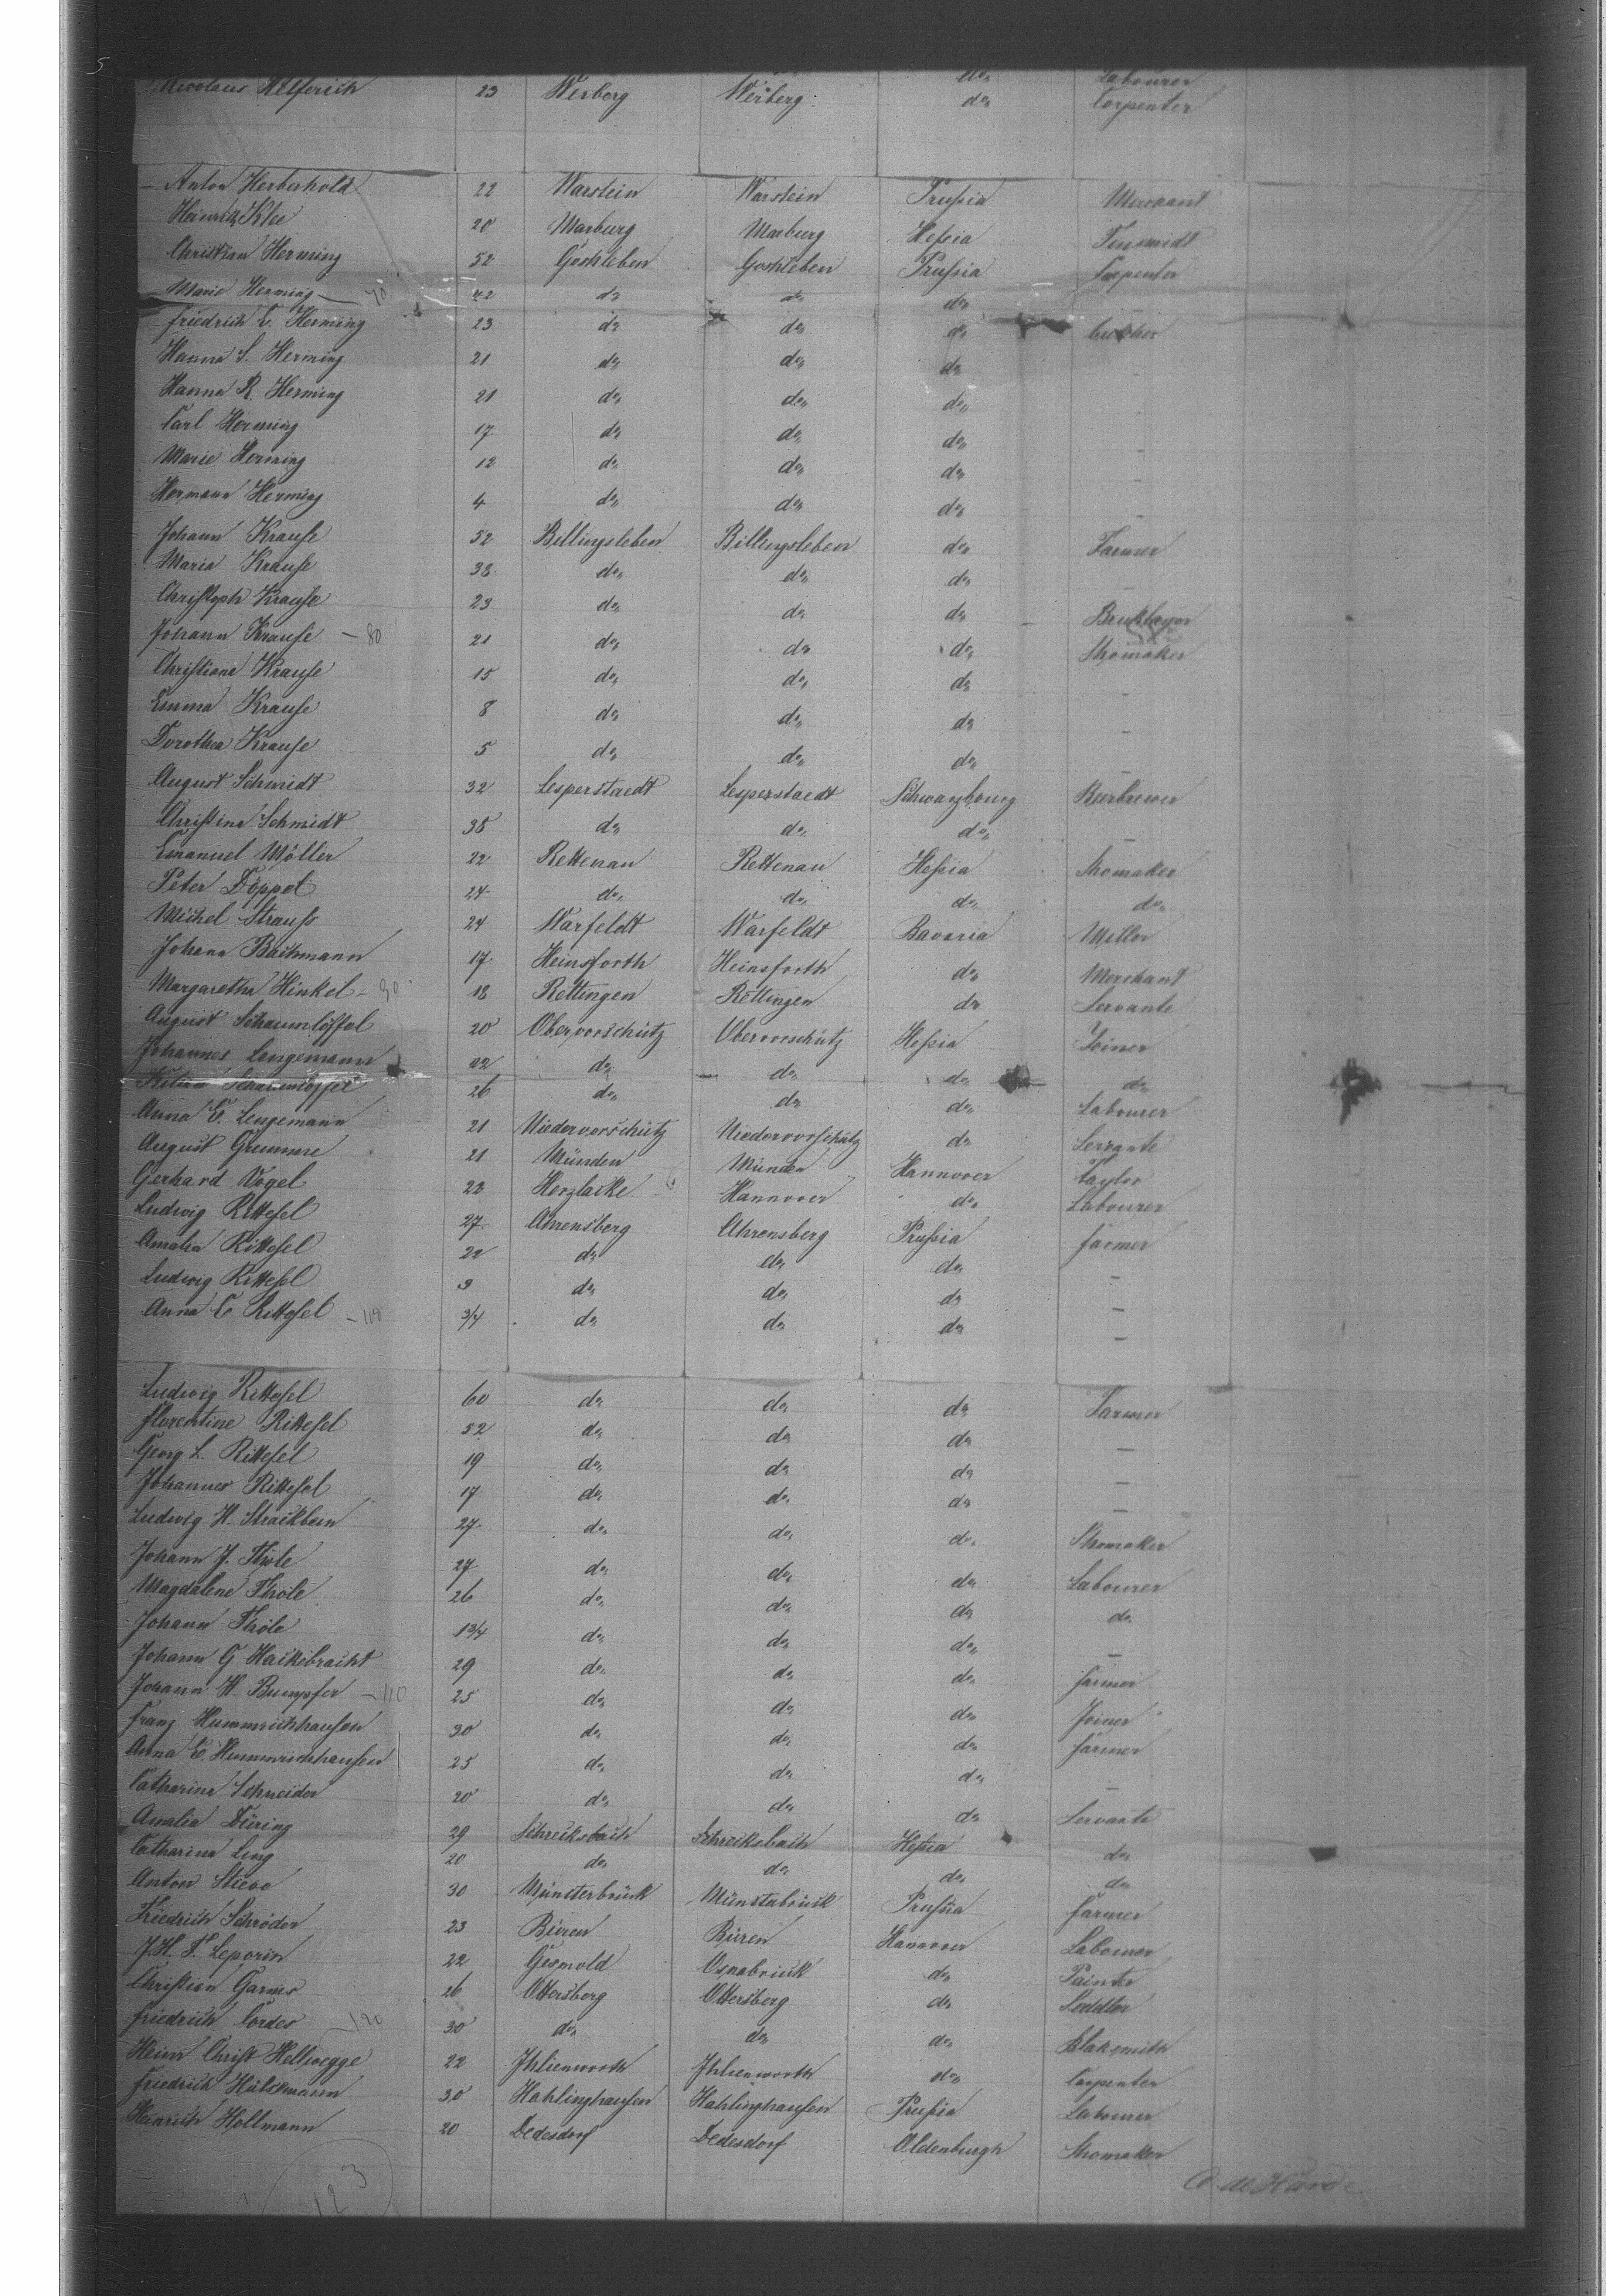 5
do, Labourer
Nicolaus Helferich 23 Werberg Werberg do, Carpenter
Anton Herberhold 22 Warstein Warstein Prussia Merchant
Heinrich Klee 20 Marburg Marburg Hessia Tinsmidt
Christian Herming 52 Gorsleben Gorsleben Prussia Carpenter
Marie Herming 70 42 do, do, do,
Friedrich C. Herming 23 do, do, do, Butcher
Hanna S. Herming 21 do, do, do, -
Hanna R. Herming 21 do, do, do, -
Carl Herming 17 do, do, do, -
Marie Herming 12 do, do, do, -
Hermann Herming 4 do, do, do, -
Johann Krause 52 Billingsleben Billingsleben do, Farmer
Maria Krause 38 do, do, do, -
Christoph Krause 23 do, do, do, Bricklayer
Johann Krause - 80 21 do, do, do, Shomaker
Christiana Krause 15 do, do, do, -
Emma Krause 8 do, do, do, -
Dorothea Krause 5 do, do, do, -
August Schmidt 32 Lesperstaedt Lesperstaedt Schwarzbourg Bierbrewer
Christina Schmidt 38 do, do, do, -
Emanuel Möller 22 Rettenau Rettenau Hessia Shomaker
Peter Döppel 24 do, do, do, do,
Michel Strauss 24 Warfeldt Warfeldt Bavaria Miller
Johann Bachmann 17 Heinsforth Heinsforth do, Merchant
Margaretha Hinkel - 90 18 Rottingen Rottingen do, Servante
August Schaumlöffel 20 Obervorschütz Obervorschütz Hessia Joiner
Johannes Lengemann 22 do, do, do, do,
Schaumlöffel 26 do, do, do, Labourer
Anna E. Lengemann 21 Niedervorschütz Niedervorschütz do, Servante
August Grumme 21 Münden Münden Hannover Taylor
Gerhard Vogel 22 Herzlacke Hannover do, Labourer
Ludwig Rittesel 27 Ahrensberg Ahrensberg Prussia Farmer
Amalia Rittesel 22 do, do, do, -
Ludwig Rittesel 3 do, do, do, -
Anna C Rittesel - 100 3/4 do, do, do, -
Ludwig Rittesel 60 do, do, do, Farmer
Florentine Rittesel 52 do, do, do, -
Georg L. Rittesel 19 do, do, do, -
Johannes Rittesel 17 do, do, do, -
Ludwig H. Stracklein 27 do, do, do, Shomaker
Johann J. Thole 27 do, do, do, Labourer
Magdalene Thole 26 do, do, do, do,
Johann Thole 1 3/4 do, do, do, -
Johann G Hackebracht 29 do, do, do, Farmer
Johann H. Rumpfer - 110 25 do, do, do, Joiner
Franz Hummrichhausen 30 do, do, do, Farmer
Anna E. Hummrichhausen 25 do, do, do, -
Catharina Schneider 20 do, do, do, Servante
Amalia Düring 29 Schrecksbach Schrecksbach Hessia do,
Catharina Ling 20 do, do, do, do,
Anton Stieve 30 Münsterbrück Münstabrück Prussia Farmer
Friedrich Schröder 23 Büren Büren Hannover Labourer
J. H. F. Leporin 22 Gesmold Osnabrück do, Painter
Christian Garms 26 Ottersberg Ottersberg do, Seddler
Friedrich Cordes - 120 30 do, do, do, Blaksmith
Heinr Christ Hellwegge 22 Ihlienworth Ihlienworth do, Carpenter
Friedrich Hülskmann 30 Hahlinghausen Hahlinghausen Prussia Labourer
Heinrich Hollmann 20 Dedesdorf Dedesdorf Oldenburgh Shomaker
123